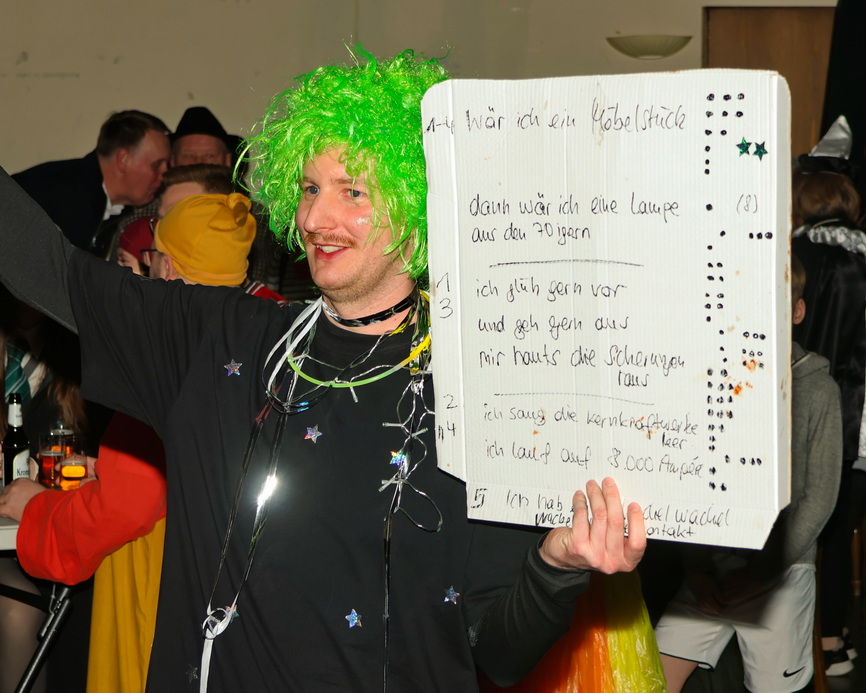 1-4 Wär ich ein Möbelstück
dann wär ich eine Lampe (8)
aus den 70igern
1 ich glüh gern vor
3 und geh gern aus
mir hauts die Scherungen
raus
2 ich saug die Kernkraftwerke
leer
4 ich lauf auf 8.000 Ampére
5 Ich hab wackel
ontakt